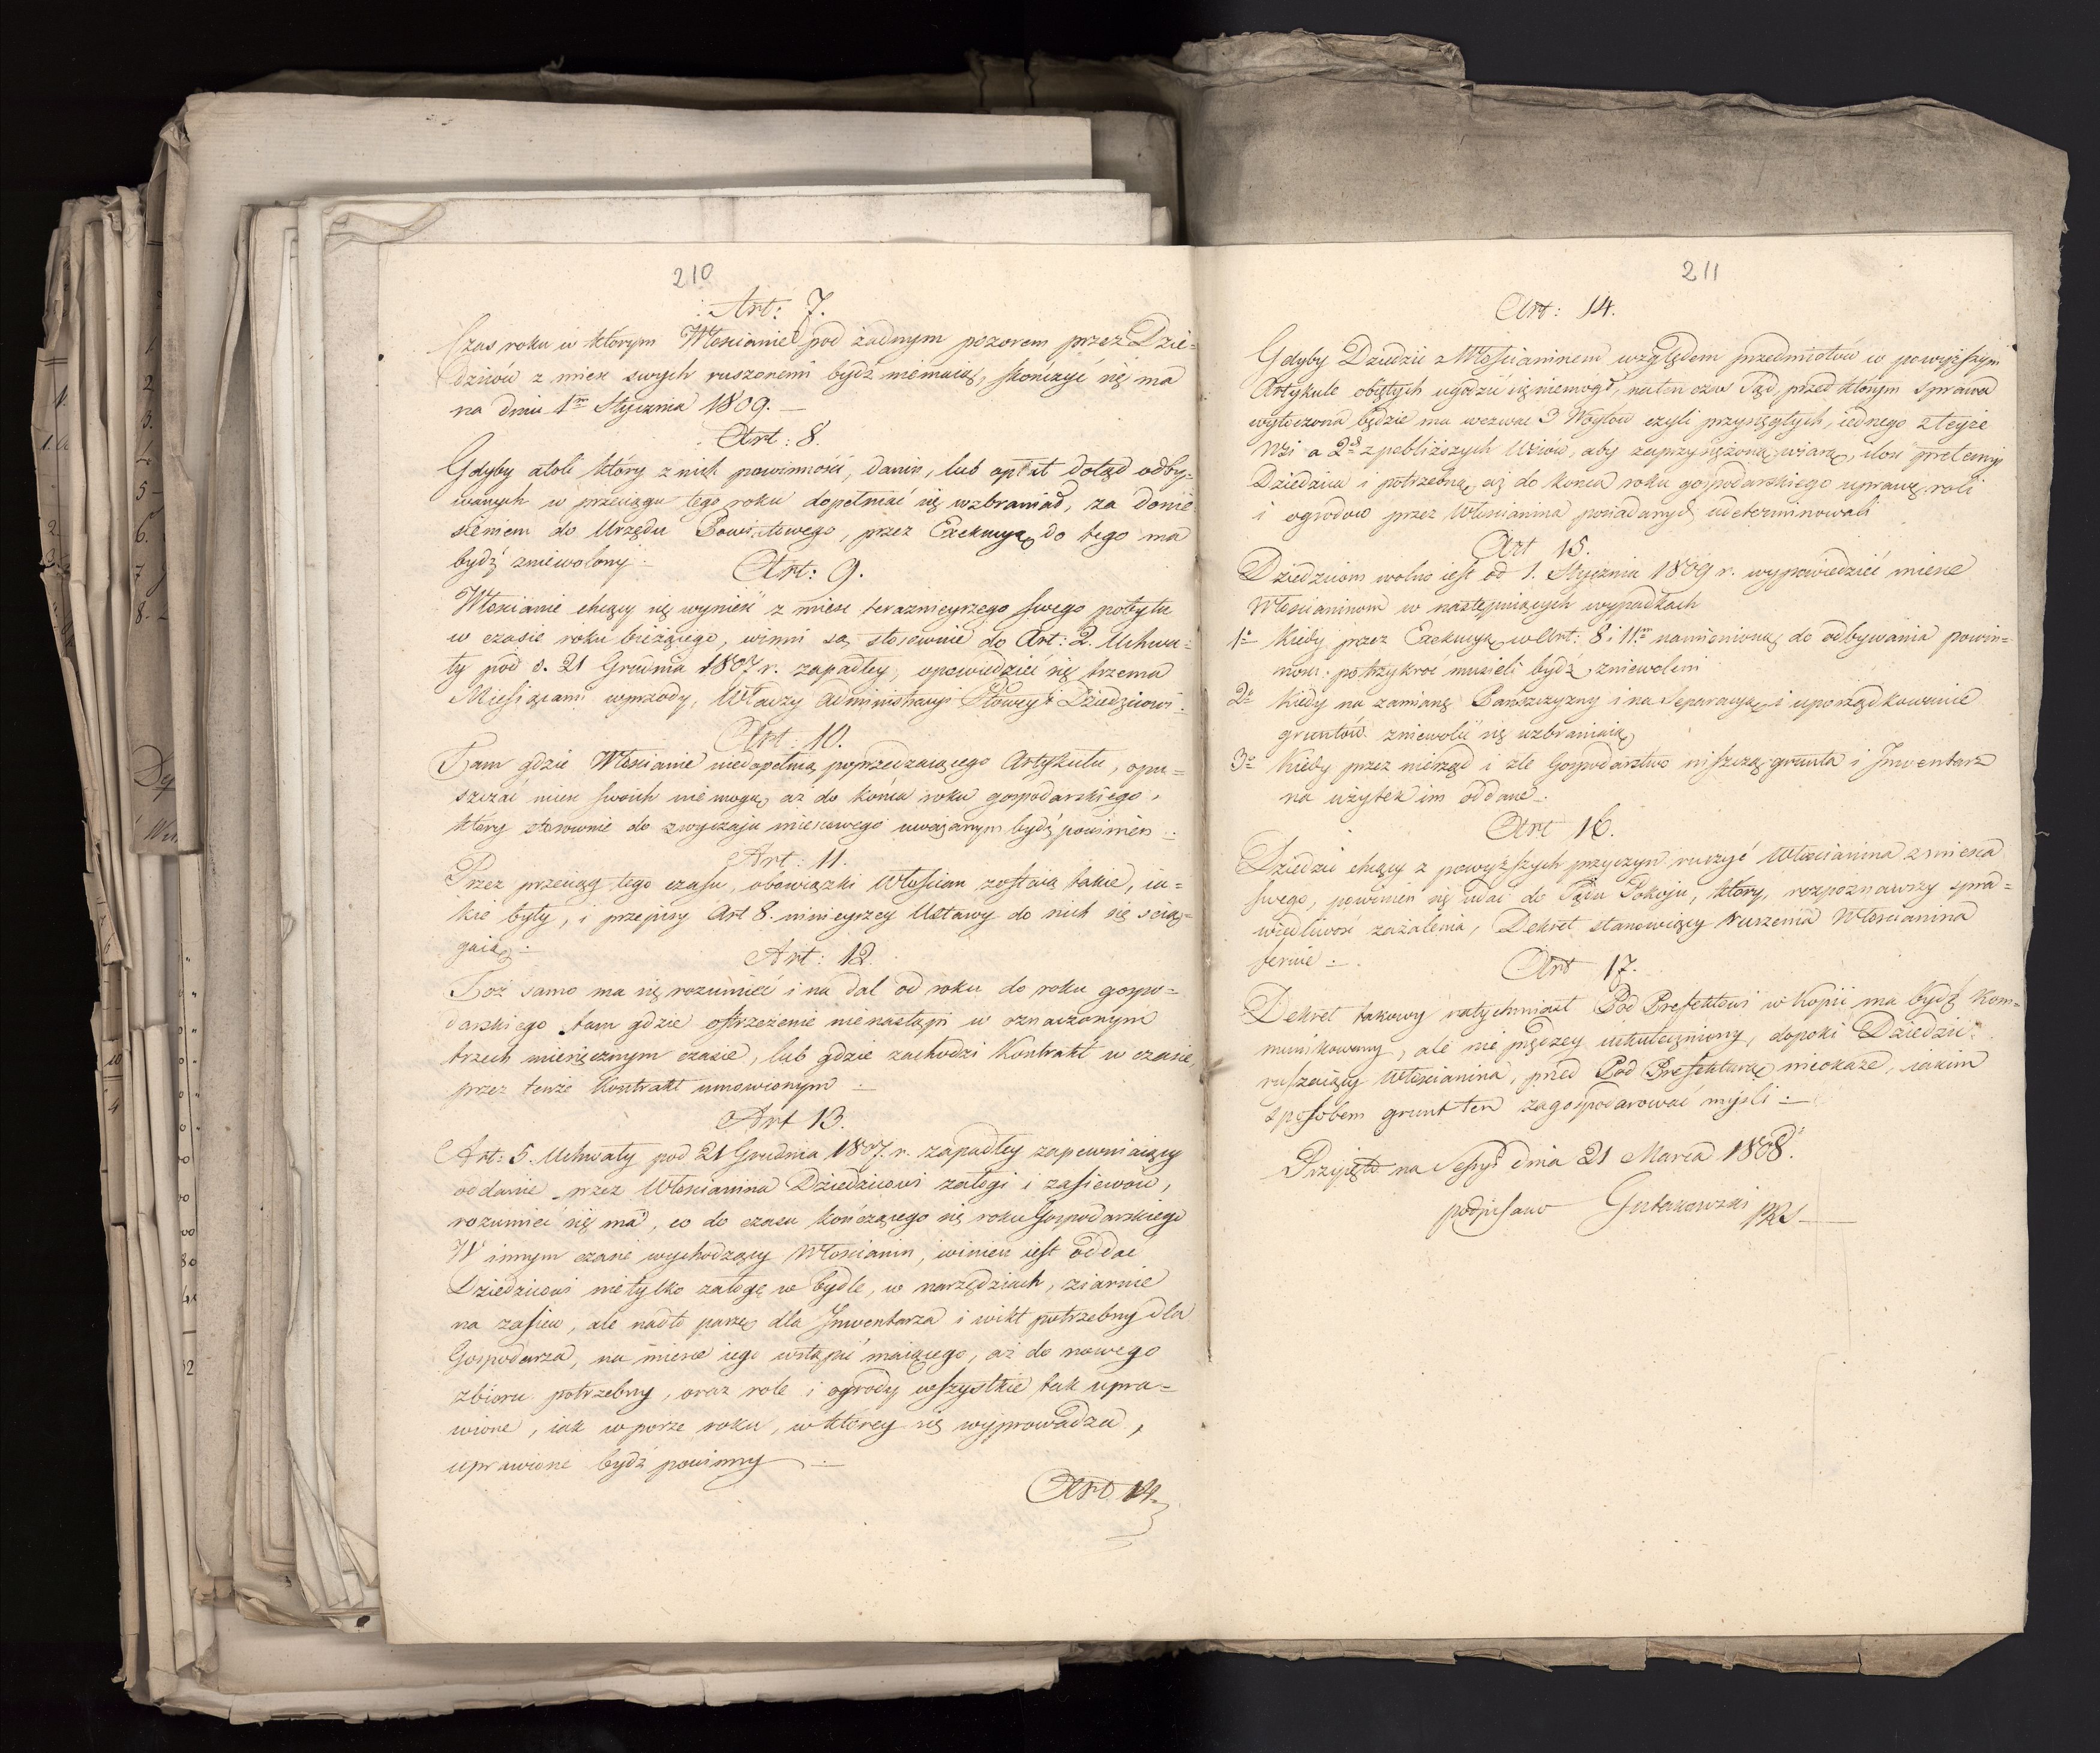 210
Art: 7.
Czas roku w którym Włościanie pod żadnym pozorem przez Dzie-
dziców z mieisc swych ruszonemi bydź niemaią, skończyć się ma
na dniu 1m Stycznia 1809. —
Art: 8.
Gdyby atoli który z nich powinności, danin, lub opłat dotąd odby-
wanych w przeciągu tego roku dopełniać się wzbraniał, za donie
sieniem do Urzędu Powiatowego, przez Exekucyą do tego ma
bydź zniewolony.
Art: 9.
Włościanie chcący się wynieść z mieisc teraznieyszego swego pobytu
w czasie roku bieżącego, winni są stosownie do Art: 2. Uchwa-
ły pod d. 21 Grudnia 1807 r. zapadłey, opowiedzieć się trzema
Miesiącami wprzody, Władzy administracyi i Dziedzicowi.
Art: 10.
Tam gdzie Włościanie niedopełnią poprzedzaiącego Artykułu, opu-
szczać mieisc swoich nie mogą, aż do końca roku gospodarskiego,
który stosownie do zwyczaju mieiscowego uważanym bydź powinien.
Art: 11.
Przez przeciąg tego czasu, obowiązki Włościan zostaią takie, ia-
kie były, i przepisy Art 8. ninieyszey Ustawy do nich się sciąg-
gaią.
Art: 12.
Toż samo ma się rozumieć i na dal od roku do roku gospo-
darskiego tam gdzie ostrzeżenie nie nastąpi w oznaczonym
trzech miesięcznym czasie, lub gdzie zachodzi Kontrakt w czasie,
przez tenże Kontrakt umowionym
Art 13.
Art: 5. Uchwały pod 21 Grudnia 1807. r. zapadłey zapewniaiący
oddanie przez Włościanina Dziedzicowi załogi i zasiewow,
rozumieć się ma, co do czasu kończącego się roku Gospodarskiego
W innym czasie wychodzący Włościanin, winien iest oddać
Dziedzicowi nie tylko załogę w bydle, w narzędziach, ziarnie
na zasiew, ale nadto paszę dla Inwentarza i wikt potrzebny dla
Gospodarza, na mieisce iego wstąpić maiącego, aż do nowego
zbioru potrzebny, oraz role i ogrody wszystkie tak upra-
wione, iak w porze roku, w którey się wyprowadza,
uprawione bydź powinny
Art 14.
211
Art: 14.
Gdyby Dziedzic z Włościaninem względem przedmiotów w powyższym
Artykule obiętych ugodzić się niemógł, na ten czas Sąd, przed którym sprawa
wytoczona będzie ma wezwać 3 Woytów czyli przysięgłych, iednego z teyże
Wsi a 2ch z pobliższych Wsiów, aby zaprzysiężoną wiarą, ilość pretensyi
Dziedzica i potrzebną aż do końca roku gospodarskiego uprawę roli
i ogrodow przez Włościanina posiadanych udeterminowali
Art 15.
Dziedzicom wolno iest od 1. Stycznia 1809 r. wypowiedzieć mieisce
Włościaninom w następuiących wypadkach
1o Kiedy przez Exekucyą w Art: 8 i 11m namienioną, do odbywania powin-
ności potrzykroć musieli bydź zniewoleni
2o Kiedy na zamianę Pańszczyzny i na Separacyą i uporządkowanie
gruntów zniewolić się wzbraniaią
3o Kiedy przez nierząd i złe Gospodarstwo niszczą grunta i Inwentarz
na użytek im oddane.
Art 16.
Dziedzic chcący z powyższych przyczyn ruszyć Włościanina z mieisca
swego, powinien się udać do Sądu Pokoju, który, rozpoznawszy spra-
wiedliwość zażalenia, Dekret stanowiący Ruszenia Włościanina
feruie.
Art 17.
Dekret takowy natychmiast Pod Prefektowi w Kopii ma bydź Kom-
munikowany, ale nie prędzey uskuteczniony, dopoki Dziedzic
ruszaiący Włościanina, przed Pod Prefekturą nieokaże, iakim
sposobem grunt ten zagospodarować myśli.
Przyięto na Sessyi dnia 21 Marca 1808.
podpisano Gutakowski